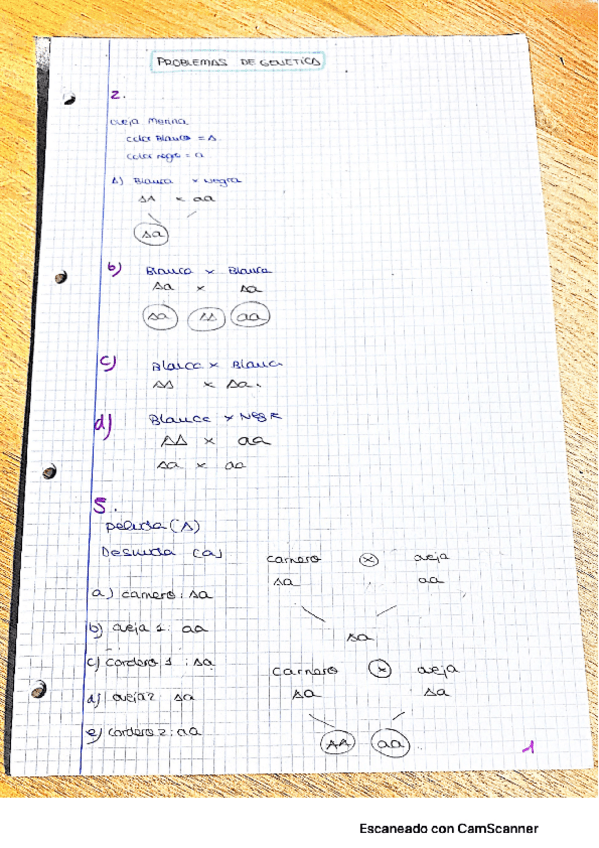 PROBLEMAS DE GENETICA
2.
oveja Merina
color Blanco = A
color negro = a
A) Blanca x Negra
AA x aa
Aa
b) Blanca x Blanca
Aa x Aa
Aa AA aa
c) Blanca x Blanca
AA x Aa.
d) Blanca x Negra
AA x aa
Aa x aa
5.
peluda (A)
Desnuda (a)
carnero x oveja
Aa aa
a) carnero: Aa
b) oveja 1: aa
Aa
c) cordero 1: Aa
carnero x oveja
Aa Aa
d) oveja 2: Aa
e) cordero 2: aa
AA aa
1
Escaneado con CamScanner